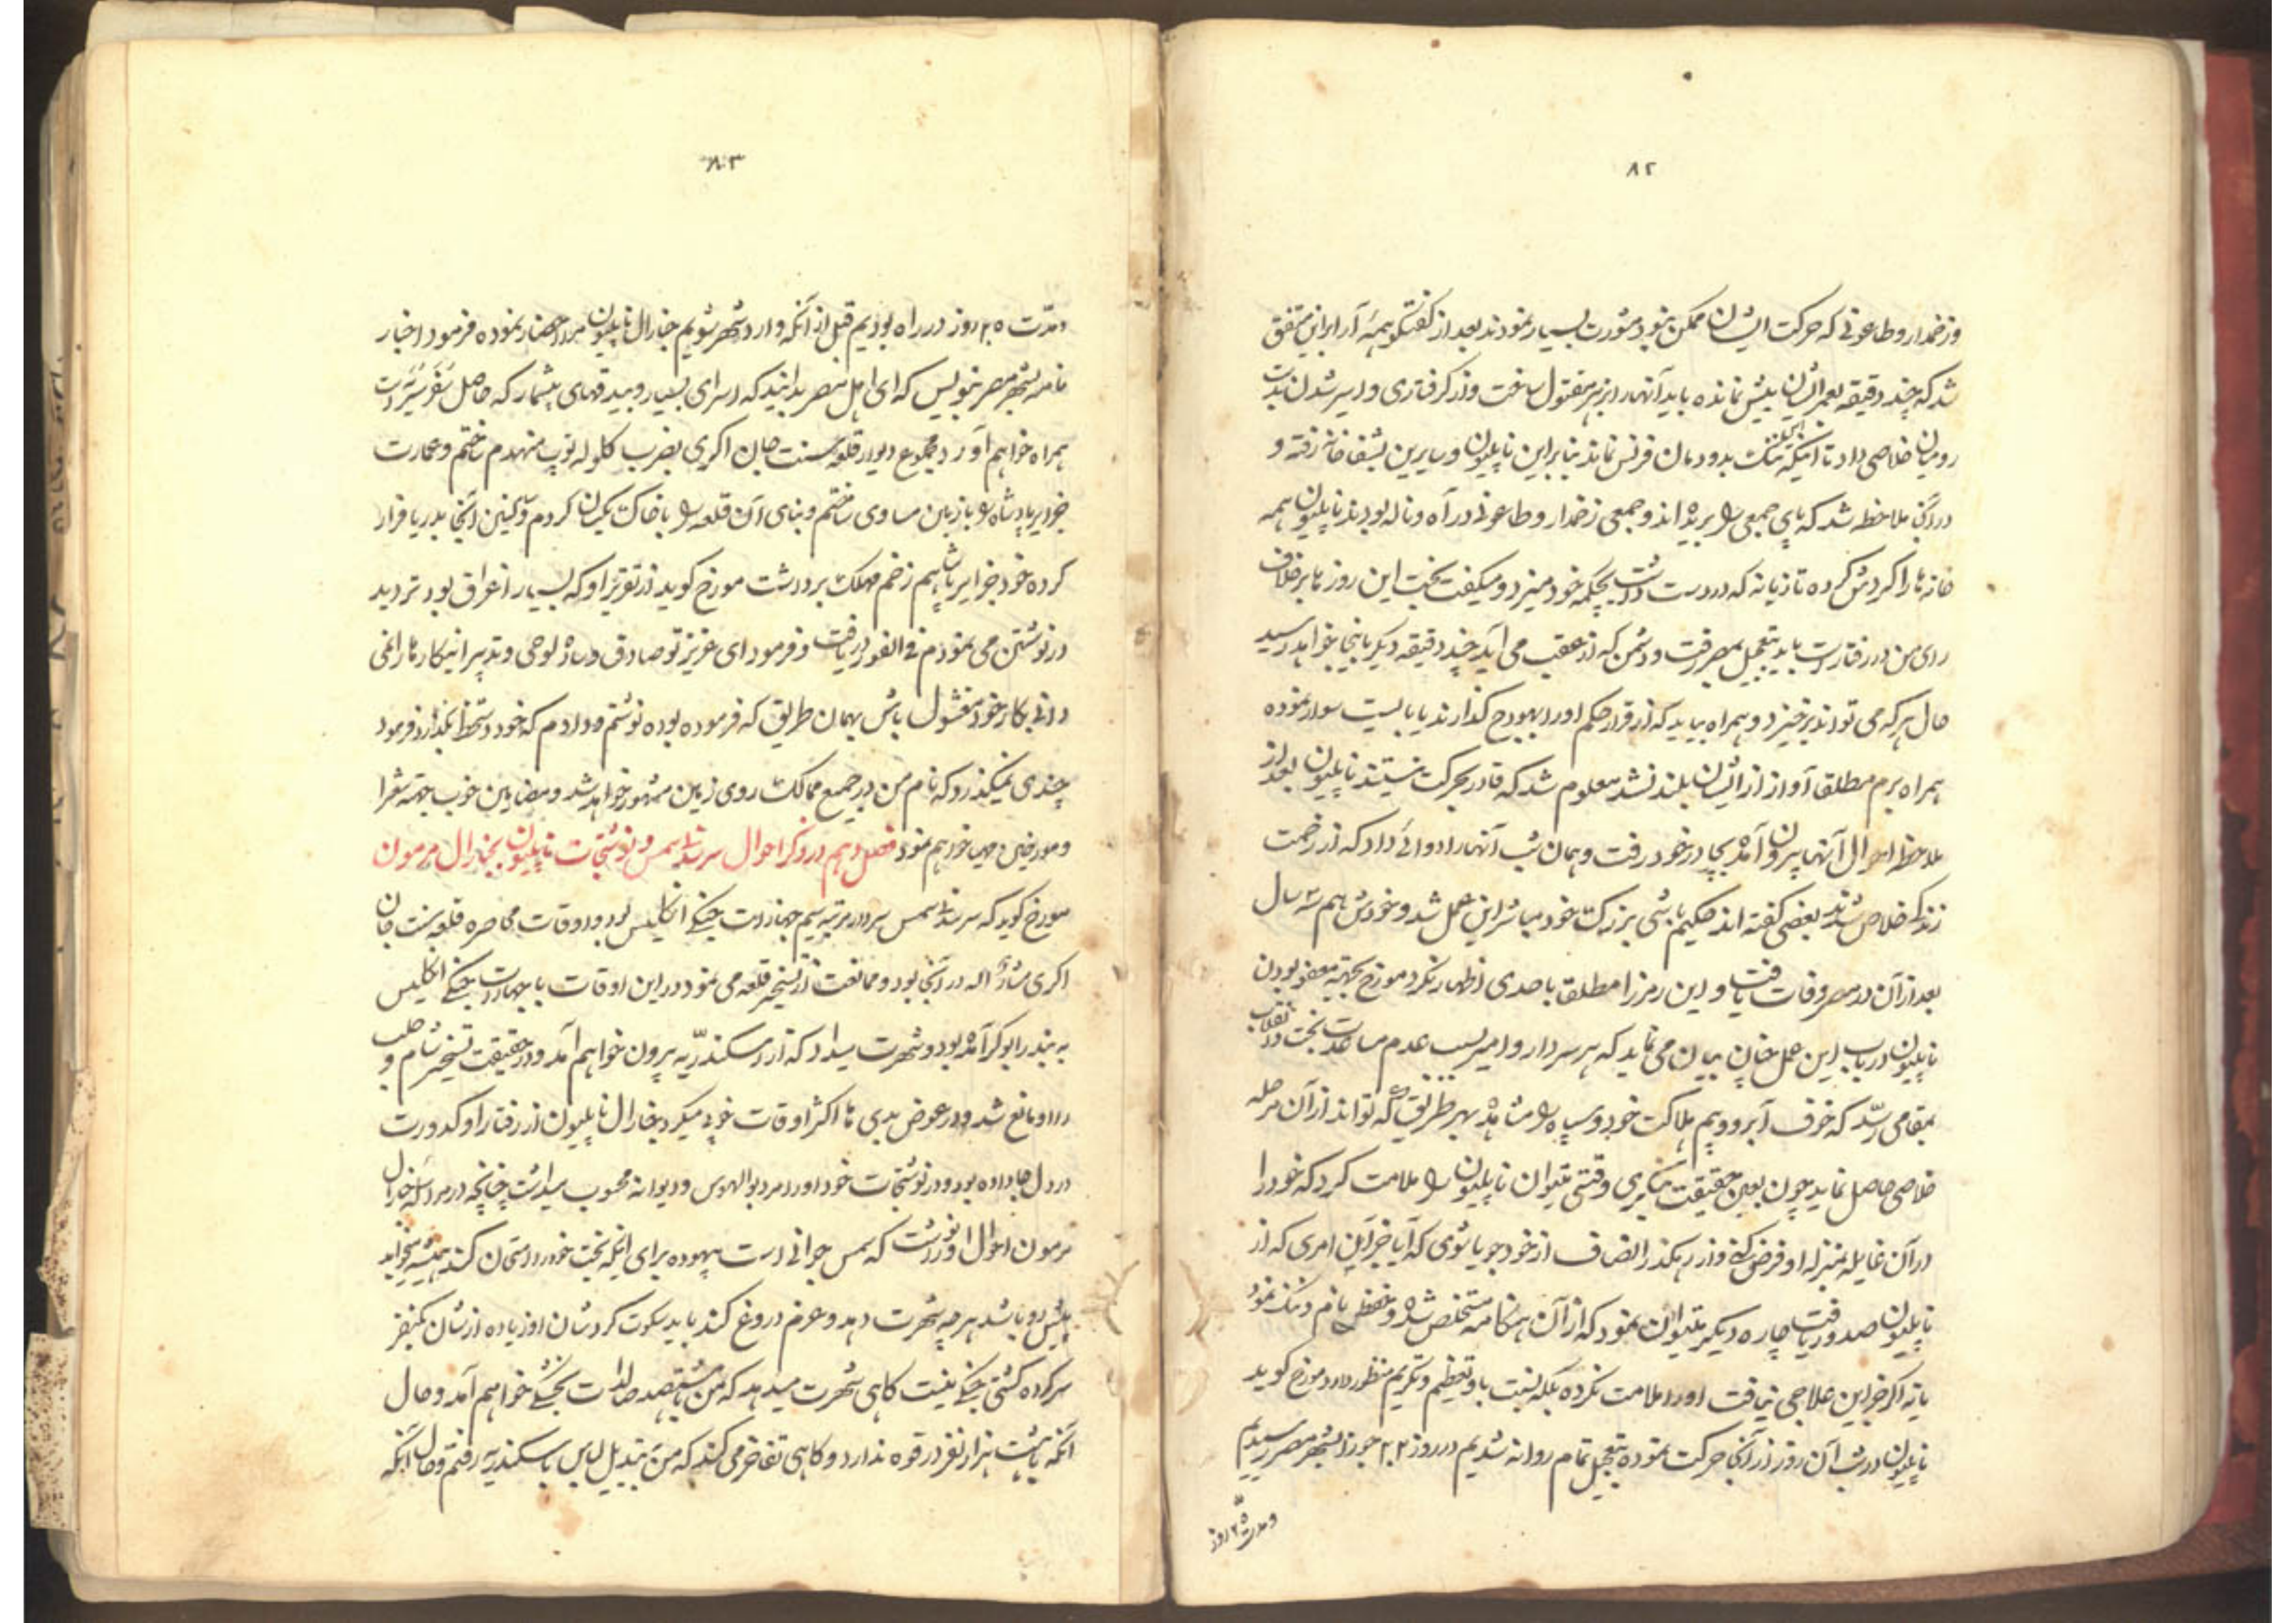 ۸۲
و زخمدار و طاعونی که حرکت ایشان ممکن نبود مشورت بسیار نمودند بعد از گفتگو همهٔ آرا براین متفق
شد که چند دقیقه بعمر ایشان بیش نمانده باید آنهارا بزهر مقتول ساخت و از گرفتاری و اسیر شدن بدست
رومیان خلاصی داد تا اینکه ننک بدودمان فرنس نماند بنابراین ناپلیون و سایرین بشفاخانه رفته و
در آنجا ملاحظه شد که پای جمعی را بریده اند و جمعی زخمدار و طاعونی در آه و ناله بودند ناپلیون همه
خانه ها را گردش کرده تازیانه که در دست داشت بچکمه خود میزد و میکفت بخت این روز ما برخلاف
رای من در رفتار است باید بتعجیل بمصر رفت و دشمن که از عقب می آید چند دقیقه دیگر باینجا خواهد رسید
حال هر که می تواند برخیزد و همراه بیاید که از قرار حکم او را بهودج گذارند یا بایست سوار نموده
همراه برم مطلقا آواز از ایشان بلند نشد معلوم شد که قادر بحرکت نیستند ناپلیون بعد از
ملاحظه احوال آنها بیرون آمده بچادر خود رفت و همان شب آنهارا دوائی داد که از زحمت
زندگی خلاص شدند بعضی گفته اند حکیم باشی بزرک خود مباشر این عمل شد و خودش هم ۳ سال
بعد از آن در مصر وفات یافت و این رمز را مطلقا باحدی اظهار نکرد مورخ بجهته معفو بودن
ناپلیون در باب این عمل چنان بیان می نماید که هر سردار و امیر بسبب عدم مساعدت بخت در انقلاب
بمقامی رسد که خوف آبرو و بیم هلاکت خود و سپاه را مشاهده بهر طریق که تواند از آن مرحله
خلاصی حاصل نماید چون بعین حقیقت بنگری وقتی میتوان ناپلیون را ملامت کرد که خود را
در آن غایله بمنزله او فرض کنی و از رهگذر انصاف از خود جویا شوی که آیا جز این امری که از
ناپلیون صدور یافت چاره دیگر میتوان نمود که از آن هنگامه مستخلص شده و حفظ نام و ننک نمود
یا نه اگر جز این علاجی نیافت او را ملامت نکرده بلکه نسبت باو تعظیم و تکریم منظور دارد مورخ گوید
ناپلیون در شب آن روز از آنجا حرکت نموده بتعجیل تمام روانه شدیم در روز ۲۲ جوزا بشهر مصر رسیدیم
و مدت ۲۵ روز
۸۳
و مدت ۲۵ روز در راه بودیم قبل از آنکه وارد شهر شویم جنارال ناپلیون مرا احضار نموده فرمود اخبار
نامه بشهر مصر بنویس که ای اهل مصر بدانید که اسرای بسیار و بیدقهای بیشمار که حاصل سفر سیریه است
همراه خواهم آورد مجموع دیوار قلعه سنت جان اکری بضرب گلوله توپ منهدم ساختم و عمارت
جزایر پادشاه را با زمین مساوی ساختم و بنای آن قلعه را با خاک یکسان کردم و سکنین آنجا بدریا فرار
کرده خود جزایر پاشا هم زخم مهلک برداشت مورخ گوید از تقریر او که بسیار اغراق بود تردید
در نوشتن می نمودم فی الفور دریافت و فرمود ای عزیز تو صادق و ساده لوحی و تدبیر اینکارها را نمی
دانی بکار خود مشغول باش بهمان طریق که فرموده بوده نوشتم و دادم که خود دستخط بگذارد فرمود
چندی نمیگذرد که نام من در جمیع ممالک روی زمین مشهور خواهد شد و مضامین خوب بجهته شعرا
و مورخین مهیا خواهم نمود فصل دهم در ذکر احوال سرسدنی اسمس و نوشتجات ناپلیون بجنارال مرمون
مورخ گوید که سرسدنی اسمس سردار مرتبه سیم جهازات جنگی انگلیس بود و اوقات محاصره قلعه سنت جان
اکری مشارالیه در آنجا بود و ممانعت از تسخیر قلعه می نمود در این اوقات با جهازات جنگی انگلیس
به بندر ابوکر آمده بود و شهرت میداد که از در سکندریه بیرون خواهم آمد و در حقیقت تسخیر شام و حلب
را او مانع شد و در عوض بدی ها اکثر اوقات خوبی میکرد جنارال ناپلیون از رفتار او کدورت
در دل جا داده بود و در نوشتجات خود او را مرد بوالهوس و دیوانه محسوب میداشت چنانچه در مراسله جنارال
مرمون احوال او نوشت که سمس جوانی است بیهوده برای اینکه بخت خود را امتحان کند همیشه میخواهد
پیش رو باشد هر چه شهرت دهد و عزم دروغ کند باید سکوت کرد شان او زیاده از شان یکنفر
سرکرده کشتی جنگی نیست گاهی شهرت میدهد که من بقصد صالدات بخشکی خواهم آمد و حال
آنکه بیست هزار نفر در قوه ندارد و گاهی تفاخر می کند که من بتبدیل لباس باسکندریه رفتم و حال آنکه